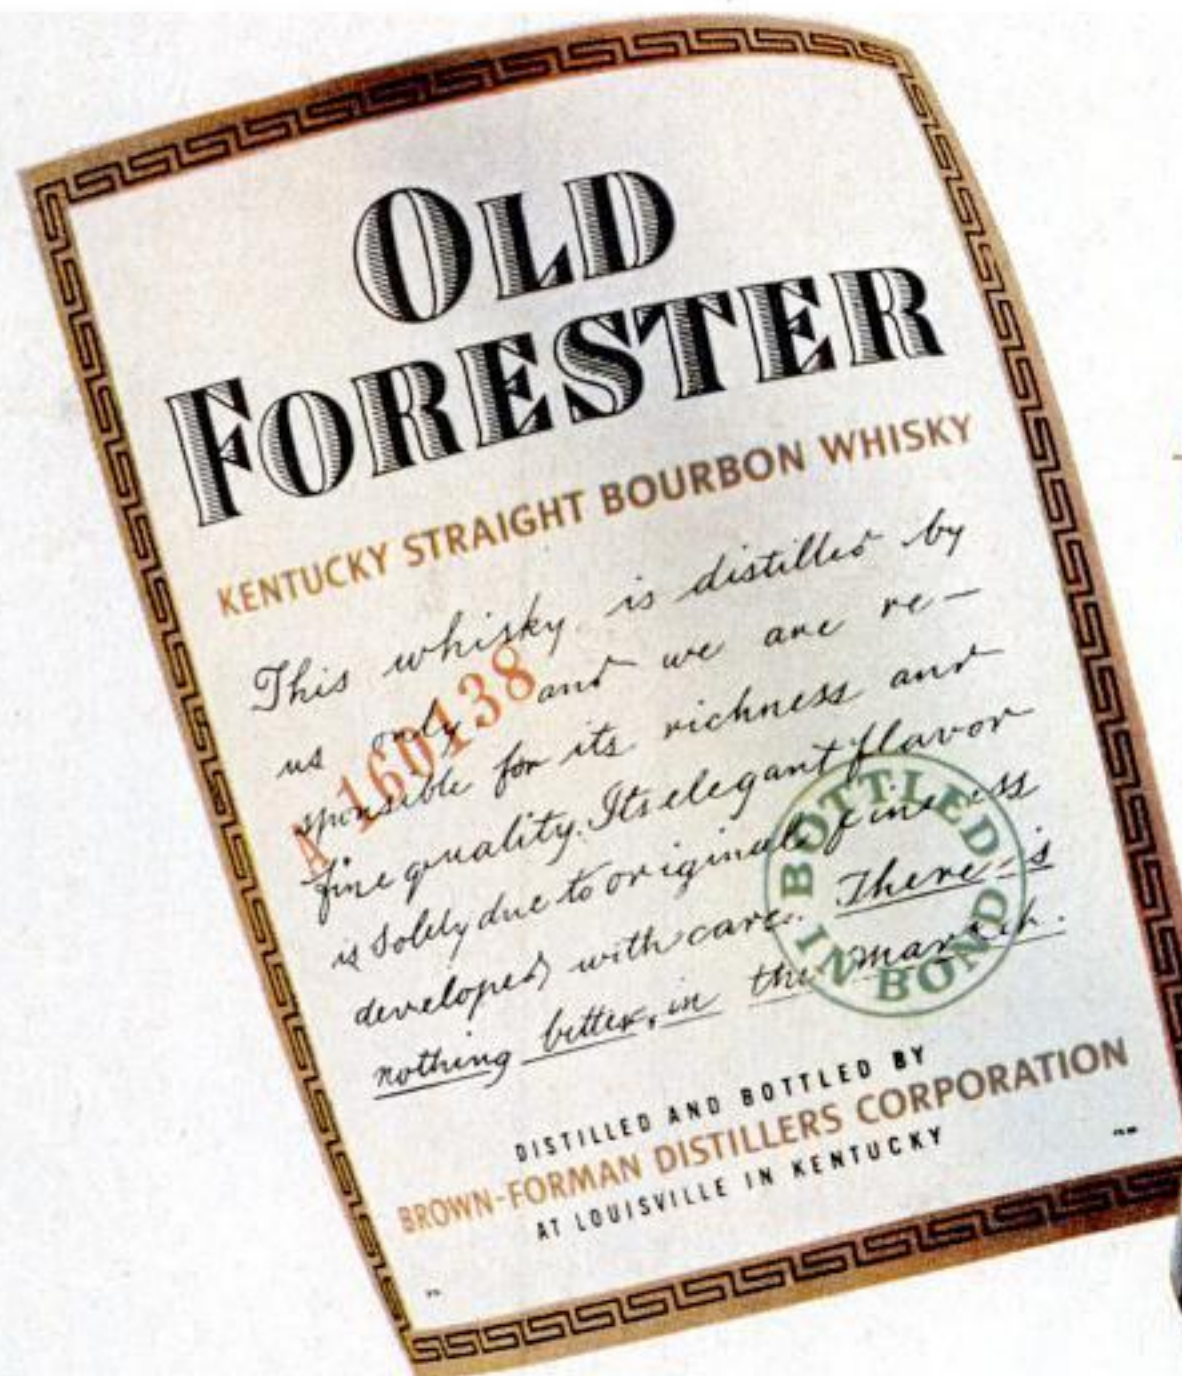 OLD
FORESTER
KENTUCKY STRAIGHT BOURBON WHISKY
This whisky is distilled by
us only and we are re-
sponsible for its richness and
fine quality. Its elegant flavor
is Solely due to original fineness
developed with care. There is
nothing better in the market.
A 160138
BOTTLED
IN BOND
DISTILLED AND BOTTLED BY
BROWN-FORMAN DISTILLERS CORPORATION
AT LOUISVILLE IN KENTUCKY